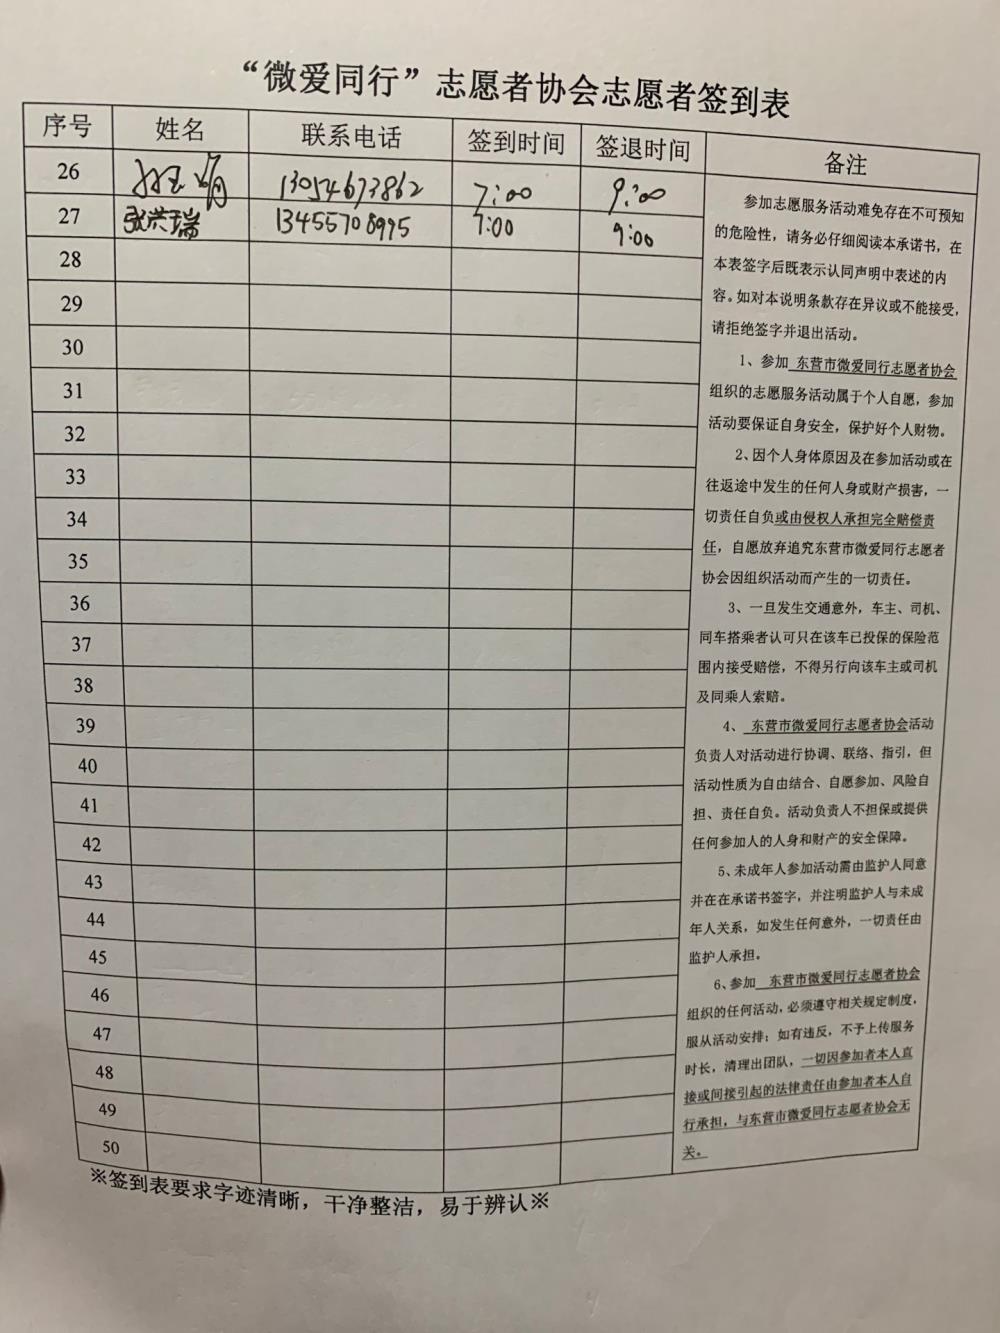 “微爱同行”志愿者协会志愿者签到表
序号 姓名 联系电话 签到时间 签退时间 备注
26 13054673862 7:00 9:00
27 张洪瑞 13455708995 7:00 9:00
28
29
30
31
32
33
34
35
36
37
38
39
40
41
42
43
44
45
46
47
48
49
50
参加志愿服务活动难免存在不可预知
的危险性，请务必仔细阅读本承诺书，在
本表签字后既表示认同声明中表述的内
容。如对本说明条款存在异议或不能接受，
请拒绝签字并退出活动。
1、参加 东营市微爱同行志愿者协会
组织的志愿服务活动属于个人自愿，参加
活动要保证自身安全，保护好个人财物。
2、因个人身体原因及在参加活动或在
往返途中发生的任何人身或财产损害，一
切责任自负或由侵权人承担完全赔偿责
任，自愿放弃追究东营市微爱同行志愿者
协会因组织活动而产生的一切责任。
3、一旦发生交通意外，车主、司机、
同车搭乘者认可只在该车已投保的保险范
围内接受赔偿，不得另行向该车主或司机
及同乘人索赔。
4、 东营市微爱同行志愿者协会活动
负责人对活动进行协调、联络、指引，但
活动性质为自由结合、自愿参加、风险自
担、责任自负。活动负责人不担保或提供
任何参加人的人身和财产的安全保障。
5、未成年人参加活动需由监护人同意
并在在承诺书签字，并注明监护人与未成
年人关系，如发生任何意外，一切责任由
监护人承担。
6、参加 东营市微爱同行志愿者协会
组织的任何活动，必须遵守相关规定制度，
服从活动安排；如有违反，不予上传服务
时长，清理出团队，一切因参加者本人直
接或间接引起的法律责任由参加者本人自
行承担，与东营市微爱同行志愿者协会无
关。
※签到表要求字迹清晰，干净整洁，易于辨认※